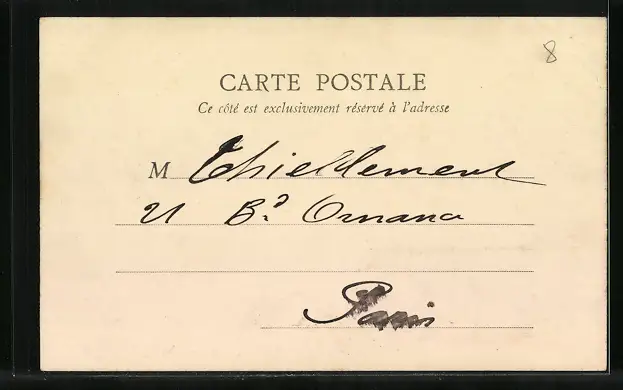 8
CARTE POSTALE
Ce côté est exclusivement réservé à l'adresse
M Thiellement
21 Bd Ornano
Paris